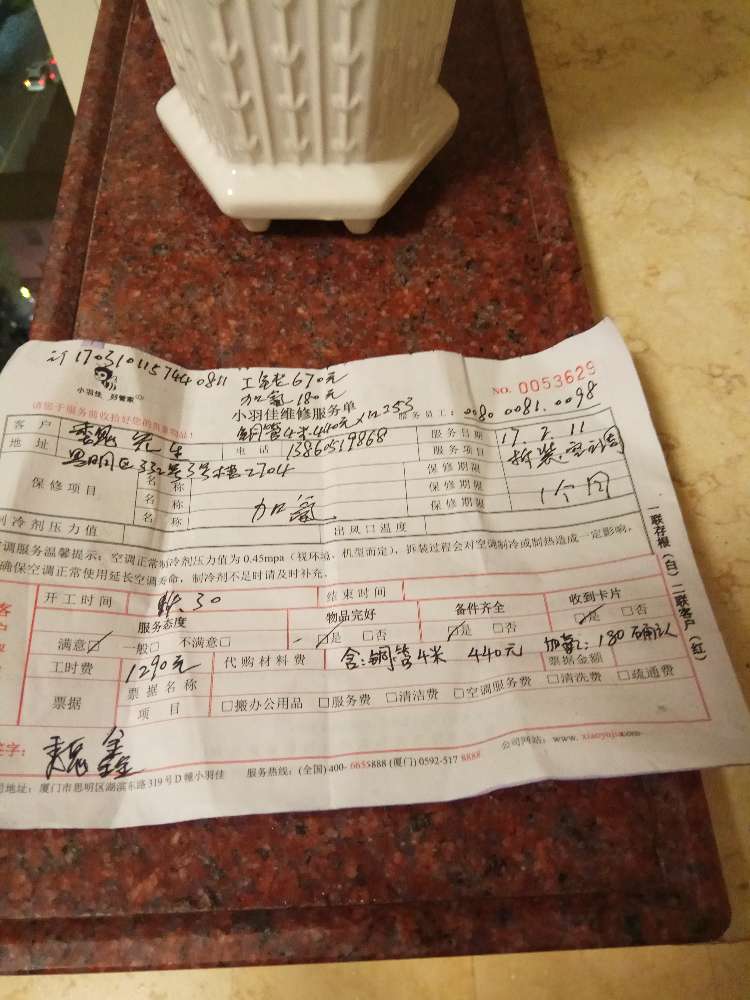 计 170310115744 0811 工钱670元
加氟180元
小羽佳 好管家
NO. 0053629
小羽佳维修服务单
铜管4米440元
请您于服务前收拾好您的贵重物品!
服务员工: 0080 0081. 0098
客户 先生 电话 13860519868 服务日期 17. 2. 11
地址 服务项目 拆装.空调
保修项目 名称 保修期限
名称 保修期限
名称 加氟 保修期限 1个月
制冷剂压力值 出风口温度
空调服务温馨提示:空调正常制冷剂压力值为0.45mpa(视环境、机型而定),拆装过程会对空调制冷或制热造成一定影响,
确保空调正常使用延长空调寿命,制冷剂不足时请及时补充。
开工时间 结束时间
服务态度 物品完好 备件齐全 收到卡片
满意☑ 一般□ 不满意□ ☑是 □否 ☑是 □否 ☑是 □否
工时费 1290元 代购材料费 含:铜管4米 440元 加氟:180确认
票据 票据名称 票据金额
项目 □搬办公用品 □服务费 □清洁费 □空调服务费 □清洗费 □疏通费
签字: 魏鑫
公司网站: www. xiaoyujia.com
公司地址: 厦门市思明区湖滨东路319号D幢小羽佳 服务热线: (全国)400- 6655888 (厦门) 0592-517 8888
一联存根(白) 二联客户(红)